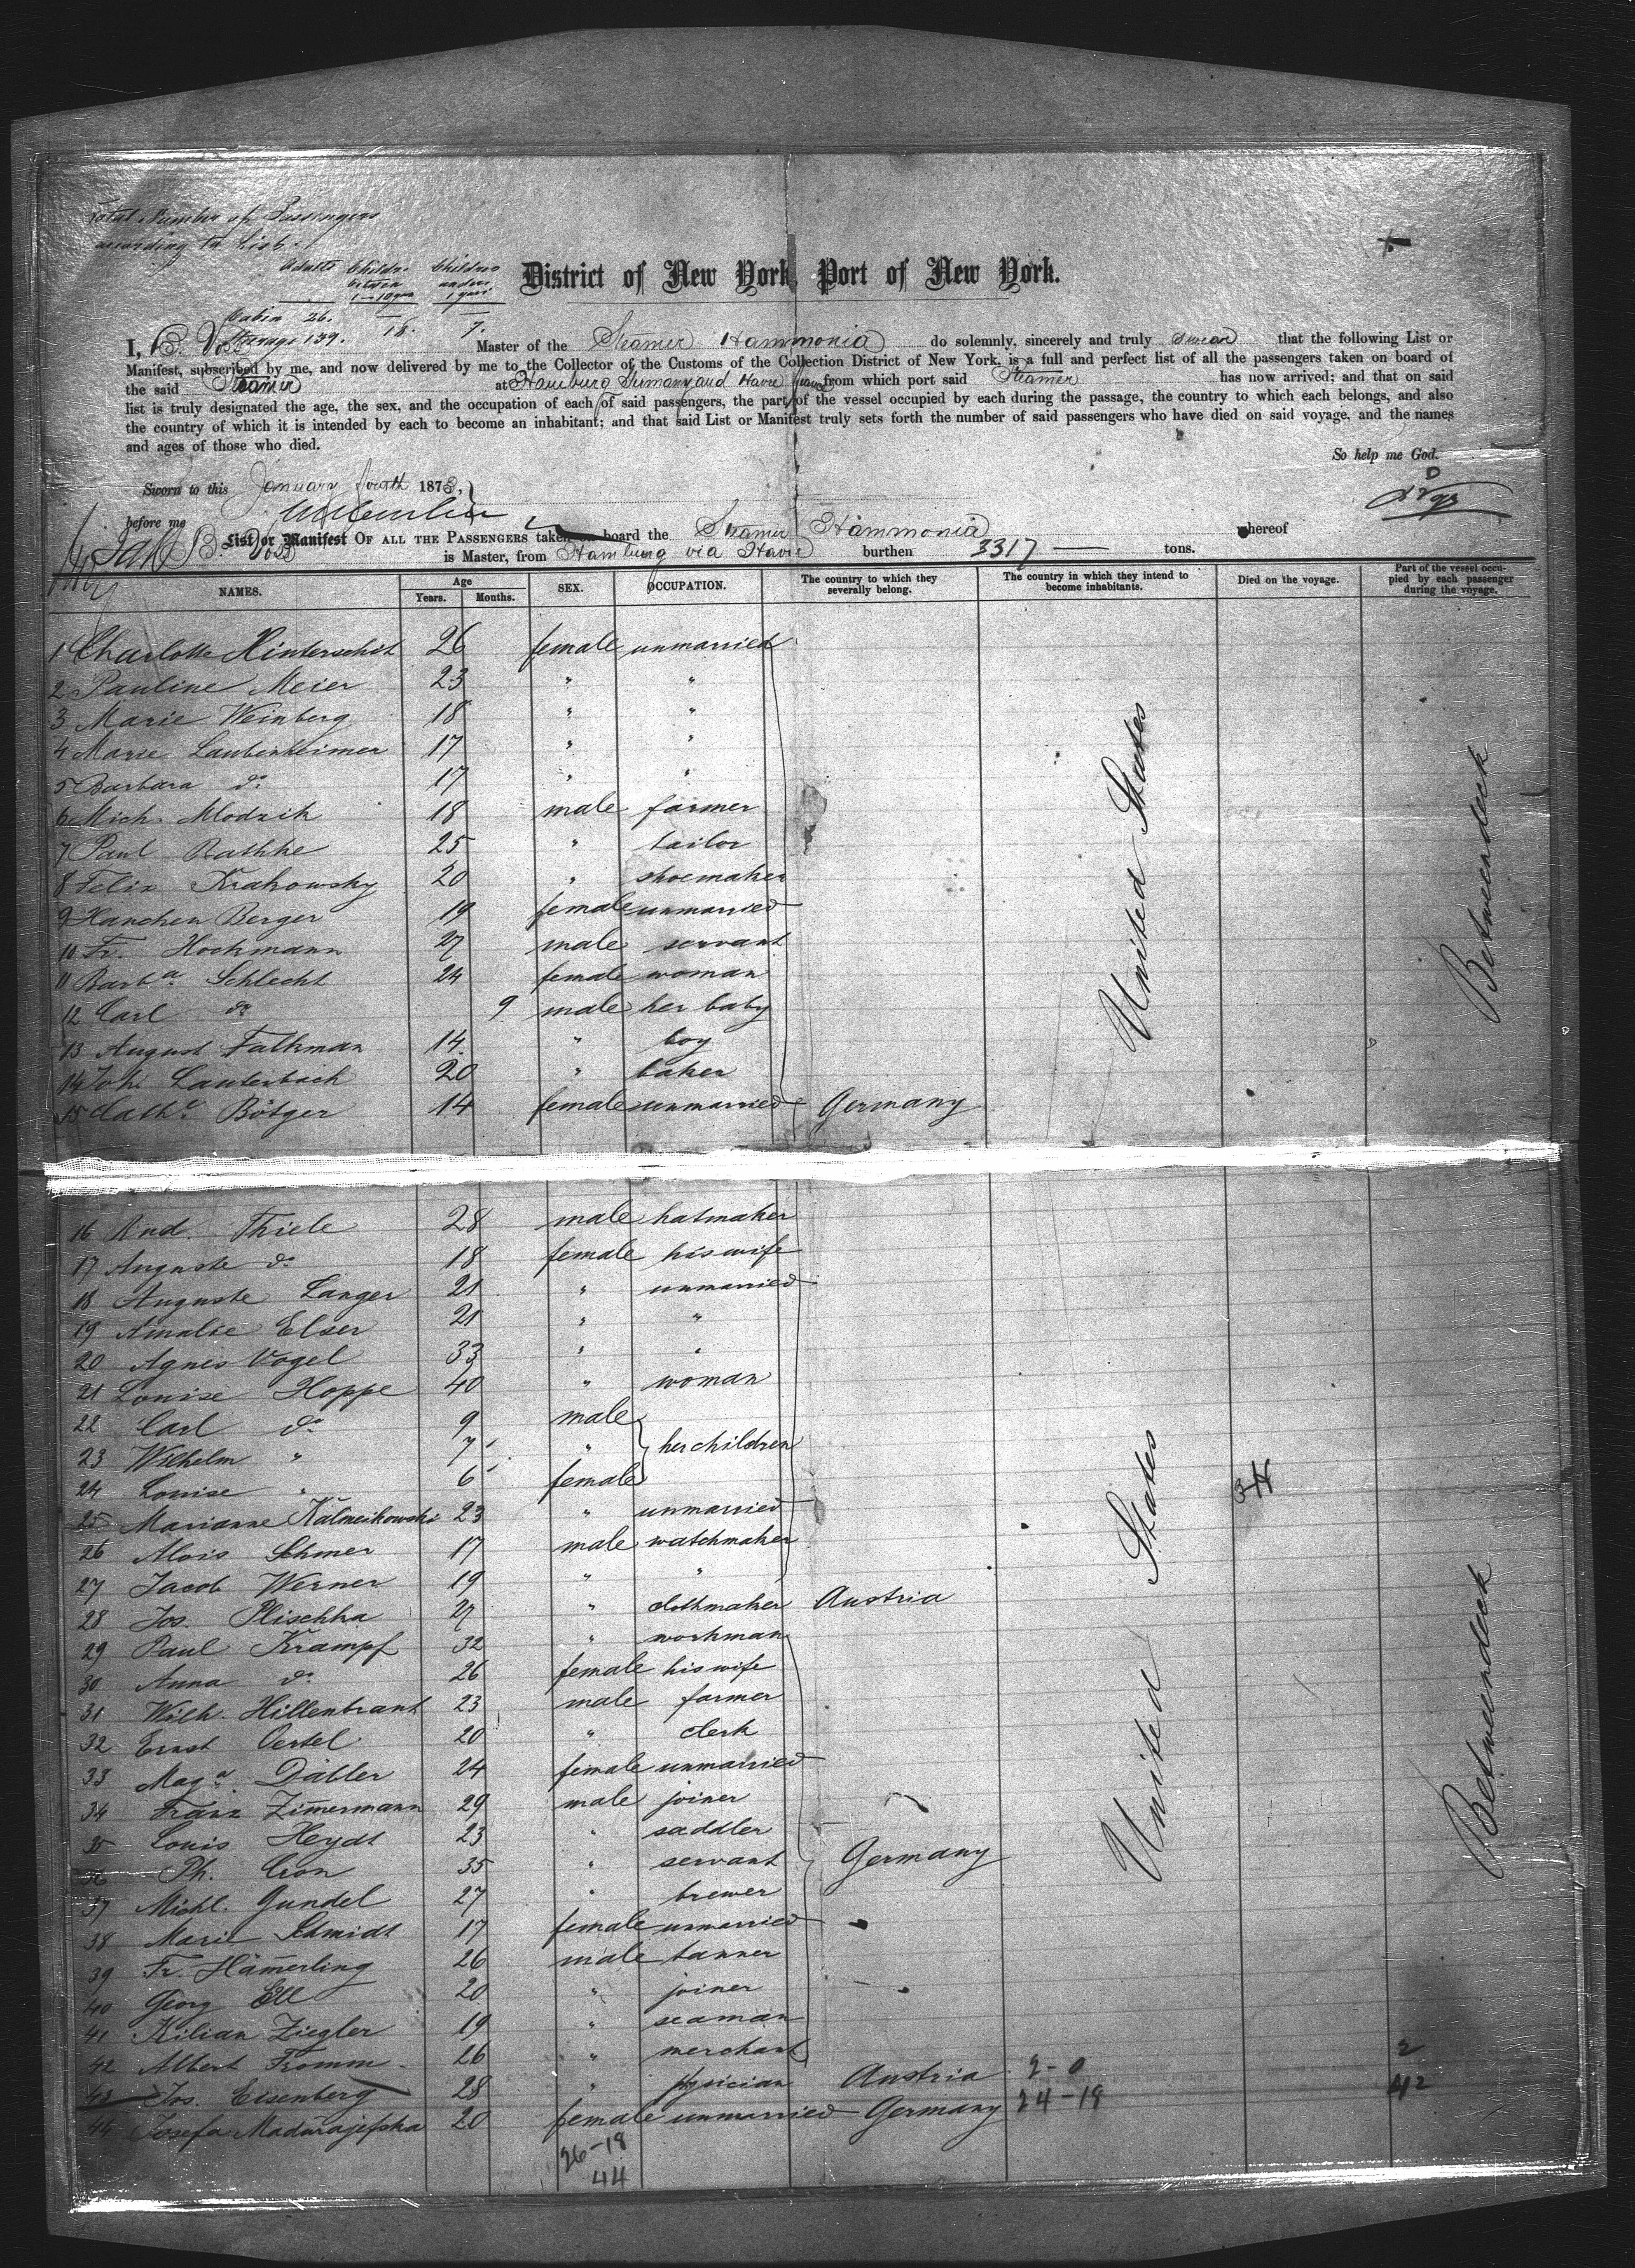 Total Number of Passengers
according to List.
Adults Childr. between 1–10 years Children under 1 year
Cabin 26. — —
Steerage 139. 18. 7.
District of New York, Port of New York.
I, B. Voss Master of the Steamer Hammonia do solemnly, sincerely and truly swear that the following List or
Manifest, subscribed by me, and now delivered by me to the Collector of the Customs of the Collection District of New York, is a full and perfect list of all the passengers taken on board of
the said Steamer at Hamburg Germany and Havre France from which port said Steamer has now arrived; and that on said
list is truly designated the age, the sex, and the occupation of each of said passengers, the part of the vessel occupied by each during the passage, the country to which each belongs, and also
the country of which it is intended by each to become an inhabitant; and that said List or Manifest truly sets forth the number of said passengers who have died on said voyage, and the names
and ages of those who died.
So help me God.
Sworn to this January fourth 1873,
before me
List or Manifest OF ALL THE PASSENGERS taken on board the Steamer Hammonia whereof
B. Voss is Master, from Hamburg via Havre burthen 3317 — tons.
NAMES. Age Years. Months. SEX. OCCUPATION. The country to which they severally belong. The country in which they intend to become inhabitants. Died on the voyage. Part of the vessel occupied by each passenger during the voyage.
1 Charlotte Hinterschit 26 female unmarried
2 Pauline Meier 23 " "
3 Marie Weinberg 18 " "
4 Marie Laubenheimer 17 " "
5 Barbara do 17 " "
6 Mich. Mlodzik 18 male farmer
7 Paul Rathke 25 " tailor
8 Felix Krakowsky 20 " shoemaker
9 Hanchen Berger 19 female unmarried
10 Fr. Hockmann 27 male servant
11 Barba Schlecht 24 female woman
12 Carl do 9 male her baby
13 August Falkman 14. " boy
14 Joh. Lauterbach 20 " baker
15 Cathe Bötger 14 female unmarried Germany
United States
Betweendeck
16 Rud. Thiele 28 male hatmaker
17 Auguste do 18 female his wife
18 Auguste Langer 21 " unmarried
19 Amalie Elser 21 " "
20 Agnes Vogel 33 " "
21 Louise Hoppe 40 " woman
22 Carl do 9 male
23 Wilhelm " 7 " her children
24 Louise " 6 female
25 Marianne Kalmeikowski 23 " unmarried
26 Alois Schmer 17 male watchmaker
27 Jacob Werner 19 " "
28 Jos. Plischka 27 " clothmaker Austria
29 Paul Krampf 32 " workman
30 Anna do 26 female his wife
31 Wilh. Hillenbrant 23 male farmer
32 Ernst Oertel 20 " clerk
33 Maga Däbler 24 female unmarried
34 Franz Zim̅ermann 29 male joiner
35 Louis Heydt 23 " saddler
36 Ph. Cron 35 " servant Germany
37 Michl. Gundel 27 " brewer
38 Marie Schmidt 17 female unmarried
39 Fr. Häm̅erling 26 male tanner
40 Georg Ell 20 " joiner
41 Kilian Ziegler 19 " seaman
42 Albert Fromm 26 " merchant
43 Jos. Eisenberg 28 " physician Austria 2-0 2
44 Josefa Madurajefska 20 female unmarried Germany 24-18 42
United States
Betweendeck
26-18
44